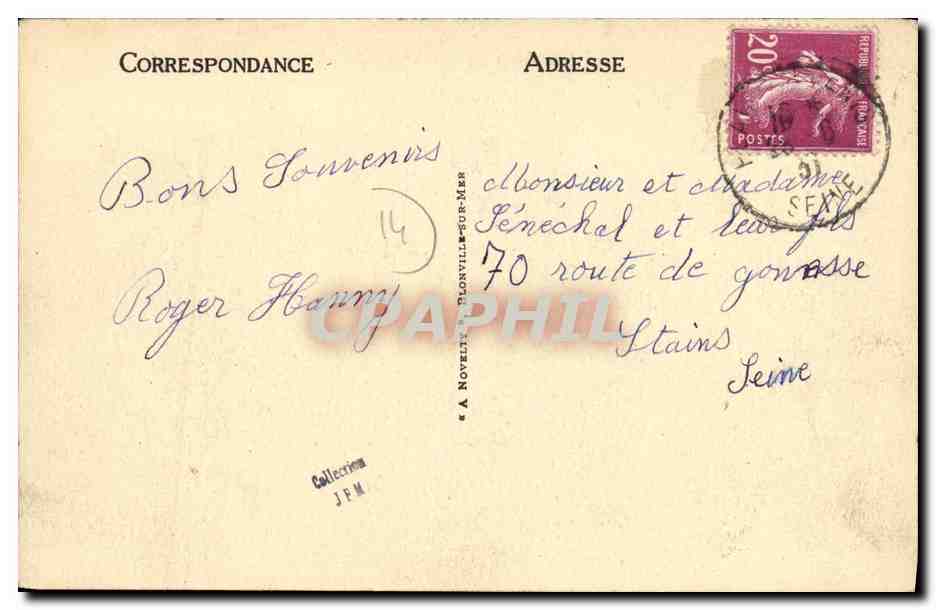 CORRESPONDANCE
ADRESSE
20c
REPUBLIQUE FRANÇAISE
POSTES
SEINE
Bons Souvenirs
14
Roger Hanny
« A NOVELTY » BLONVILLE-SUR-MER
Monsieur et Madame
Sénéchal et leur fils
70 route de gonesse
Stains
Seine
CPAPHIL
Collection
JPM